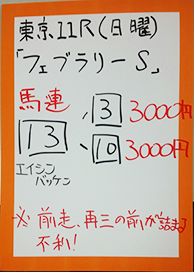 東京11R(日曜)
「フェブラリーS」
馬連
13 、3 3000円
、10 3000円
エイシン
バッケン
※前走、再三の前が詰まる
不利!